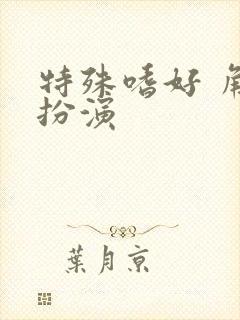 特殊嗜好 角
扮演
葉月京